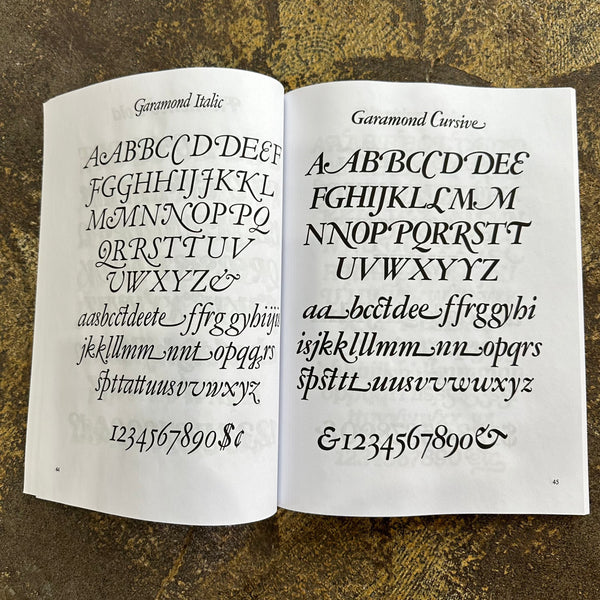 Garamond Italic
AABBCCDEEF
FGGHHIJJKKL
MMNNOPPQ
QRRSTTUV
UWXYZ&
aasbcctdeete ffrg gyhiijis
jkkllmm nnt opqqsrs
spttattuusvvwxyz
1234567890$¢
44
Garamond Cursive
AABBCCDDEE
FGHIJKKLLMM
NNOPPQRRSTT
UVVWXYYZ
aa bcctdee ffrggyhi
isjkkllmm nn opqrs
spsttt uusvvwwxyz
&1234567890&
45